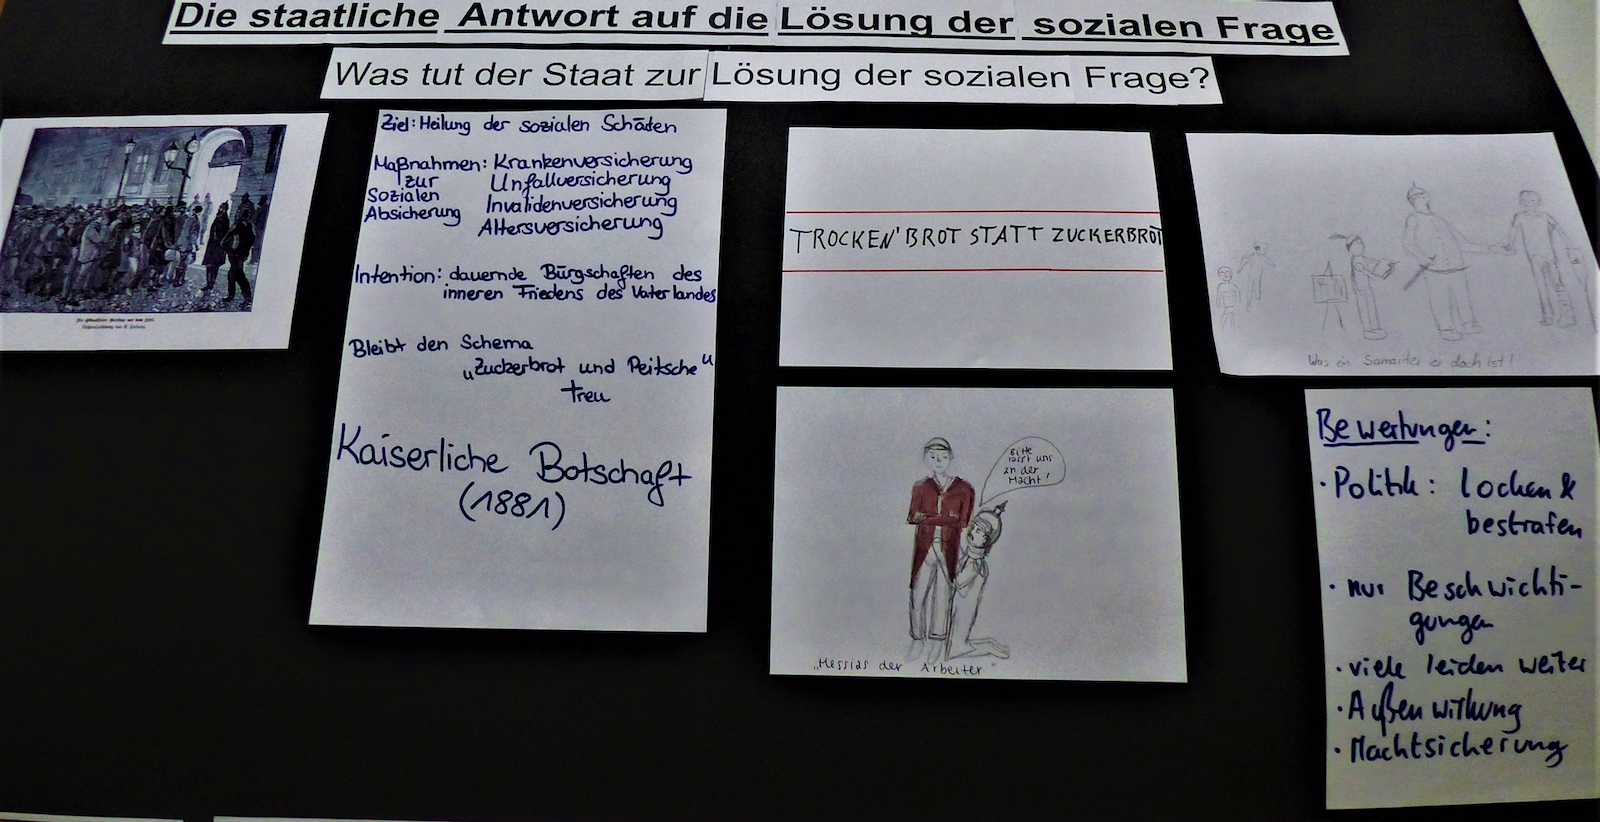 Die staatliche Antwort auf die Lösung der sozialen Frage
Was tut der Staat zur Lösung der sozialen Frage?
Ziel: Heilung der sozialen Schäden
Maßnahmen: Krankenversicherung
zur Unfallversicherung
Sozialen Invalidenversicherung
Absicherung Altersversicherung
Intention: dauernde Bürgschaften des
inneren Friedens des Vaterlandes
Bleibt den Schema
„Zuckerbrot und Peitsche"
treu
Kaiserliche Botschaft
(1881)
TROCKEN'BROT STATT ZUCKERBROT
Bitte
lasst uns
an der
Macht!
„Messias der Arbeiter"
Was ein Samariter er doch ist!
Bewertungen:
· Politik: locken &
bestrafen
· nur Beschwichti-
gungen
· viele leiden weiter
· Außenwirkung
· Machtsicherung